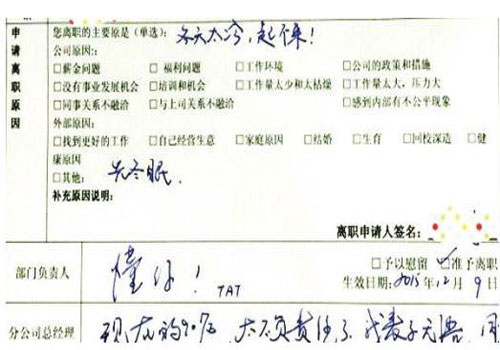 申请离职原因
您离职的主要原是(单选): 冬天太冷,起不来!
公司原因:
□薪金问题 □福利问题 □工作环境 □公司的政策和措施
□没有事业发展机会 □培训和机会 □工作量太少和太枯燥 □工作量太大,压力大
□同事关系不融洽 □与上司关系不融洽 □感到内部有不公平现象
外部原因:
□找到更好的工作 □自己经营生意 □家庭原因 □结婚 □生育 □回校深造 □健
康原因
□其他: 去冬眠.
补充原因说明:
离职申请人签名:
部门负责人 懂你! TAT □予以慰留 ☑准予离职
生效日期: 2015年12月9日
分公司总经理 现在的90后,太不负责任了,我表示无语,同